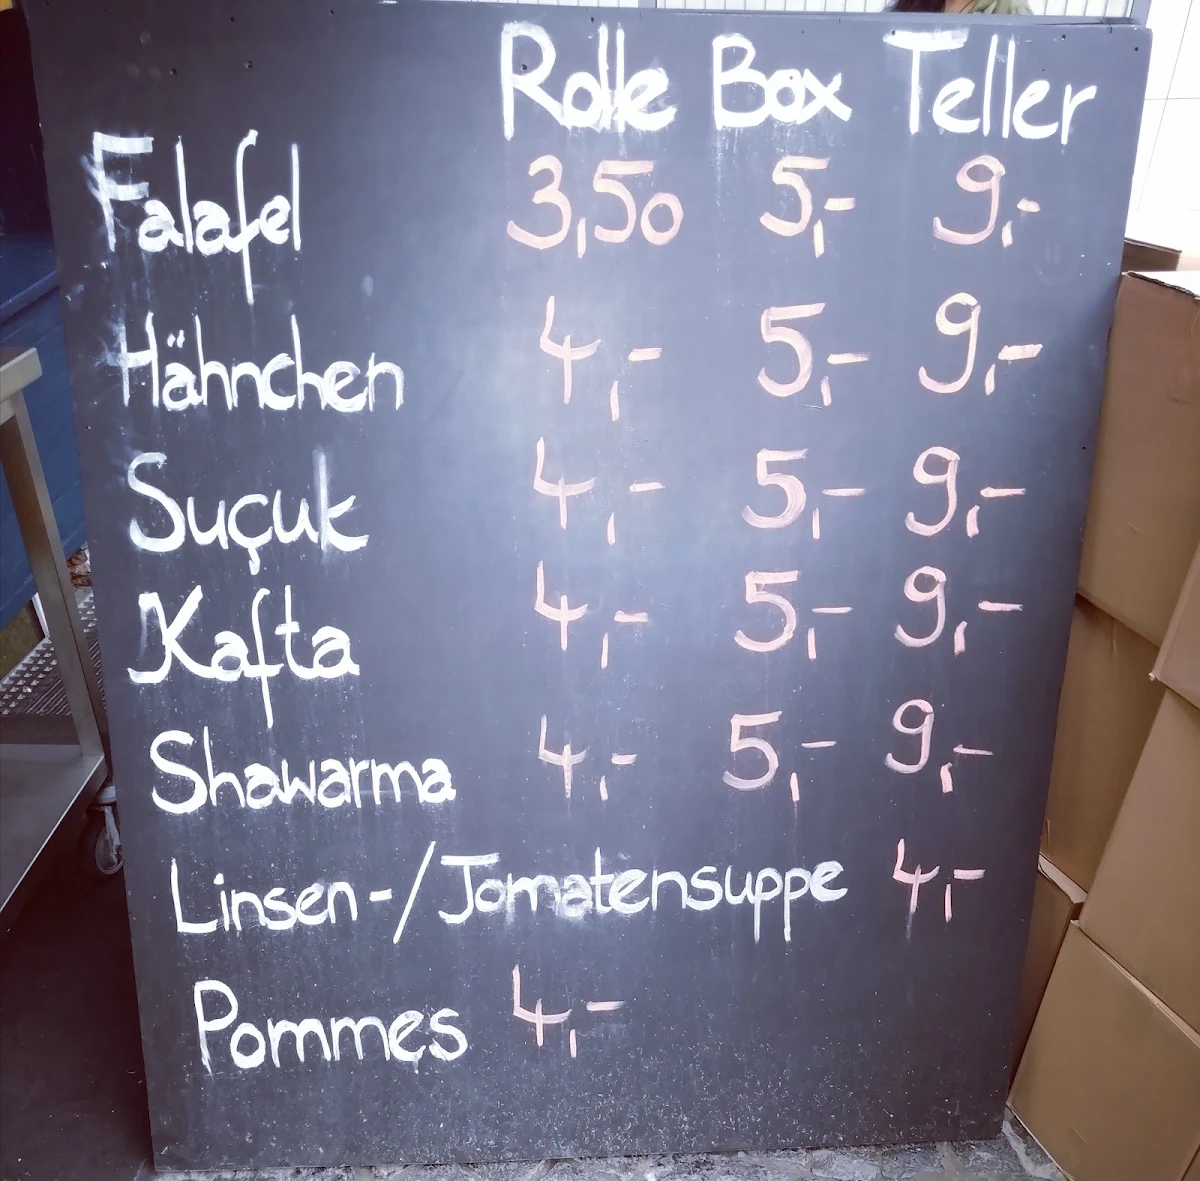 Rolle Box Teller
Falafel 3,50 5,- 9,-
Hähnchen 4,- 5,- 9,-
Suçuk 4,- 5,- 9,-
Kafta 4,- 5,- 9,-
Shawarma 4,- 5,- 9,-
Linsen-/Tomatensuppe 4,-
Pommes 4,-